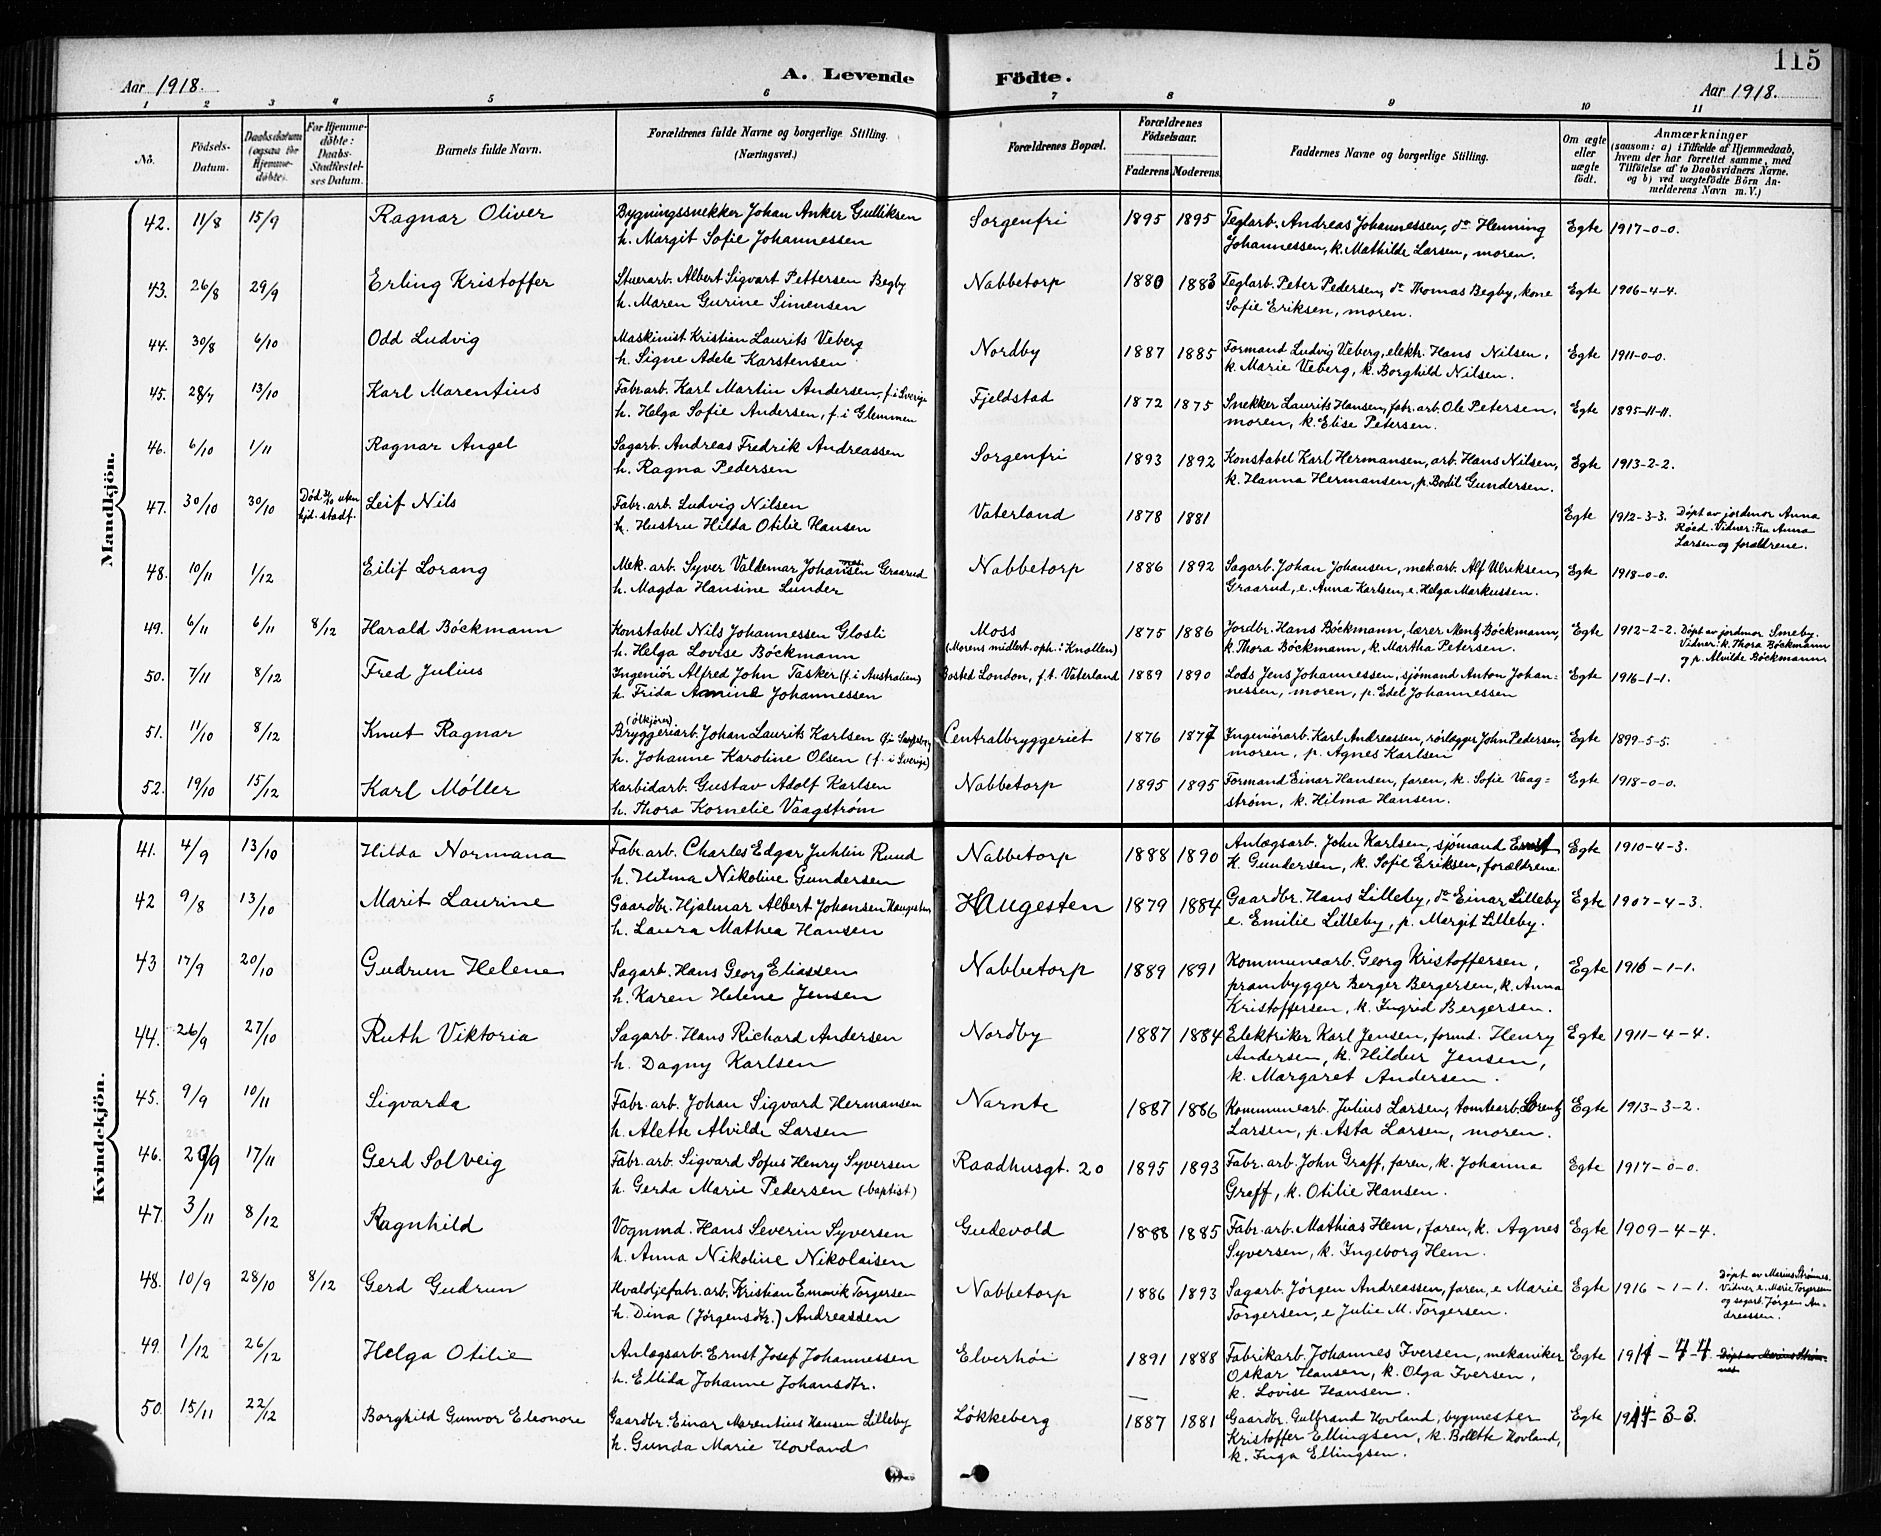 115
Aar 1918.
A. Levende Födte.
Aar 1918.
1 2 3 4 5 6 7 8 9 10 11
No.
Födsels-Datum.
Daabsdatum (ogsaa for Hjemme-döbte).
For Hjemme-döbte: Daabs-Stadfestel-ses Datum.
Barnets fulde Navn.
Forældrenes fulde Navne og borgerlige Stilling. (Næringsvei.)
Forældrenes Bopæl.
Forældrenes Födselsaar.
Faderens Moderens
Faddernes Navne og borgerlige Stilling.
Om ægte eller uægte födt.
Anmærkninger
(saasom: a) i Tilfælde af Hjemmedaab,
hvem der har forrettet samme, med
Tilföielse af to Daabsvidners Navne.
og b) ved uægtefödte Börn An-
melderens Navn m. V.)
Mandkjön.
42. 11/8 15/9 Ragnar Oliver Bygningssnekker Johan Anker Gulliksen Sorgenfri 1895 1895 Teglarb. Andreas Johannessen, do Henning Egte 1917-0-0.
h. Margit Sofie Johannessen Johannessen, k. Mathilde Larsen, moren.
43. 26/8 29/9 Erling Kristoffer Stuerarb. Albert Sigvart Pettersen Begby Nabbetorp 1880 1883 Teglarb. Peter Pedersen, do Thomas Begby, kone Egte 1906-4-4.
h. Maren Gurine Simensen Sofie Eriksen, moren.
44. 30/8 6/10 Odd Ludvig Maskinist Kristian Laurits Veberg Nordby 1887 1885 Formand Ludvig Veberg, elektr. Hans Nilsen, Egte 1911-0-0.
h. Signe Adele Karstensen k. Marie Veberg, k. Borghild Nilsen.
45. 28/7 13/10 Karl Marentius Fabr.arb. Karl Martin Andersen, f. i Sverige Fjeldstad 1872 1875 Snekker Laurits Hansen, fabr. arb. Ole Petersen, Egte 1895-11-11.
h. Helga Sofie Andersen, f. i Glemmen moren, k. Elise Petersen.
46. 6/10 1/11 Ragnar Angel Sagarb. Andreas Fredrik Andreassen Sorgenfri 1893 1892 Konstabel Karl Hermansen, arb. Hans Nilsen, Egte 1913-2-2.
h. Ragna Pedersen k. Hanna Hermansen, p. Bodil Gundersen.
47. 30/10 30/10 Død uten hjd. stadf. Leif Nils Fabr. arb. Ludvig Nilsen Vaterland 1878 1881 Egte 1912-3-3. Døpt av jordmor Anna
h. Hustru Hilda Otilie Hansen Røed. Vidner: Fru Anna
Larsen og forældrene.
48. 10/11 1/12 Eilif Lorang Mek. arb. Syver Valdemar Johansen Graarud Nabbetorp 1886 1892 Sagarb. Johan Johansen, mek.arb. Alf Ulriksen, Egte 1918-0-0.
h. Magda Hansine Lunder Graarud, e. Anna Karlsen, e. Helga Markussen.
49. 6/11 6/11 8/12 Harald Böckmann Konstabel Nils Johannessen Glosli Moss 1875 1886 Jordbr. Hans Böckmann, lærer Mentz Böckmann, Egte 1912-2-2. Døpt av jordmor Smeby.
h. Helga Lovise Böckmann (Morens midlert. oph.: Knollen) k. Thora Böckmann, k. Martha Petersen. Vidner: k. Thora Böckmann
og p. Alvilde Böckmann.
50. 7/11 8/12 Fred Julius Ingeniör Alfred John Tasker (f. i Australien) Bosted London, f. t. Vaterland 1889 1890 Lods Jens Johannessen, sjömand Anton Johan- Egte 1916-1-1.
h. Frida Amine Johannessen nessen, moren, p. Edel Johannessen
51. 11/10 8/12 Knut Ragnar (ölkjörer) Bryggeriarb. Johan Laurits Karlsen Centralbryggeriet 1876 1877 Ingeniörarb. Karl Andreassen, rörlægger John Pedersen, Egte 1899-5-5.
h. Johanne Karoline Olsen (f. i Sverige) moren, p. Agnes Karlsen
52. 19/10 15/12 Karl Möller Karbidarb. Gustav Adolf Karlsen Nabbetorp 1895 1895 Formand Einar Hansen, faren, k. Sofie Vaag- Egte 1918-0-0.
h. Thora Kornelie Vaagström ström, k. Hilma Hansen.
Kvindekjön.
41. 4/9 13/10 Hilda Normana Fabr. arb. Charles Edgar Juhlin Ruud Nabbetorp 1888 1890 Anlægsarb. John Karlsen, sjömand Ernst Egte 1910-4-3.
h. Hilma Nikoline Gundersen K. Gundersen, k. Sofie Eriksen, forældrene.
42 9/8 13/10 Marit Laurine Gaardbr. Hjalmar Albert Johansen Haugesten Haugesten 1879 1884 Gaardbr. Hans Lilleby, do Einar Lilleby Egte 1907-4-3.
h. Laura Mathea Hansen e. Emilie Lilleby, p. Margit Lilleby.
43 17/9 20/10 Gudrun Helene Sagarb. Hans Georg Eliassen Nabbetorp 1889 1891 Kommunearb. Georg Kristoffersen, Egte 1916-1-1.
h. Karen Helene Jensen prambygger Berger Bergersen, k. Anna
Kristoffersen, k. Ingrid Bergersen.
44. 26/9 27/10 Ruth Viktoria Sagarb. Hans Richard Andersen Nordby 1887 1884 Elektriker Karl Jensen, formd. Henry Egte 1911-4-4.
h. Dagny Karlsen Andersen, k. Hildur Jensen,
k. Margaret Andersen.
45. 9/9 10/11 Sigvarda Fabr. arb. Johan Sigvard Hermansen Narnte 1887 1886 Kommunearb. Julius Larsen, tomtearb. Lorentz Egte 1913-3-2.
h. Alette Alvilde Larsen Larsen, p. Asta Larsen, moren.
46. 17/11 Gerd Solveig Fabr. arb. Sigvard Sofus Henry Syversen Raadhusgt. 20 1895 1893 Fabr. arb. John Graff, faren, k. Johanna Egte 1917-0-0.
h. Gerda Marie Pedersen (baptist) Graff, k. Otilie Hansen.
47. 3/11 8/12 Ragnhild Vognmd. Hans Severin Syversen Gudevold 1888 1885 Fabr. arb. Mathias Hem, faren, k. Agnes Egte 1909-4-4.
h. Anna Nikoline Nikolaisen Syversen, k. Ingeborg Hem.
48. 10/9 28/10 8/12 Gerd Gudrun Hvaloljefabr. arb. Kristian Emovik Torgersen Nabbetorp 1886 1893 Sagarb. Jörgen Andreassen, faren, e Marie Egte 1916-1-1. Døpt av Marius Strömnes.
h. Dina (Jörgensdtr.) Andreassen Torgersen, e Julie M. Torgersen. Vidner e. Marie Torgersen
og sagarb. Jörgen An-
dreassen.
49. 1/12 26/12 Helga Otilie Anlægsarb. Ernst Josef Johannessen Elverhöi 1891 1888 Fabrikarb. Johannes Iversen, mekaniker Egte 1911-4-4. Døpt av Marius Ström-
h. Ellida Johanne Johansdtr. Oskar Hansen, k. Olga Iversen, nes
k. Lovise Hansen.
50. 15/11 22/12 Borghild Gunvor Eleonore Gaardbr. Einar Marentius Hansen Lilleby Lökkeberg 1887 1881 Gaardbr. Gulbrand Hovland, bygmester Egte 1914-3-3.
h. Gunda Marie Hovland Kristoffer Ellingsen, k. Bolette Hovland,
k. Inga Ellingsen.